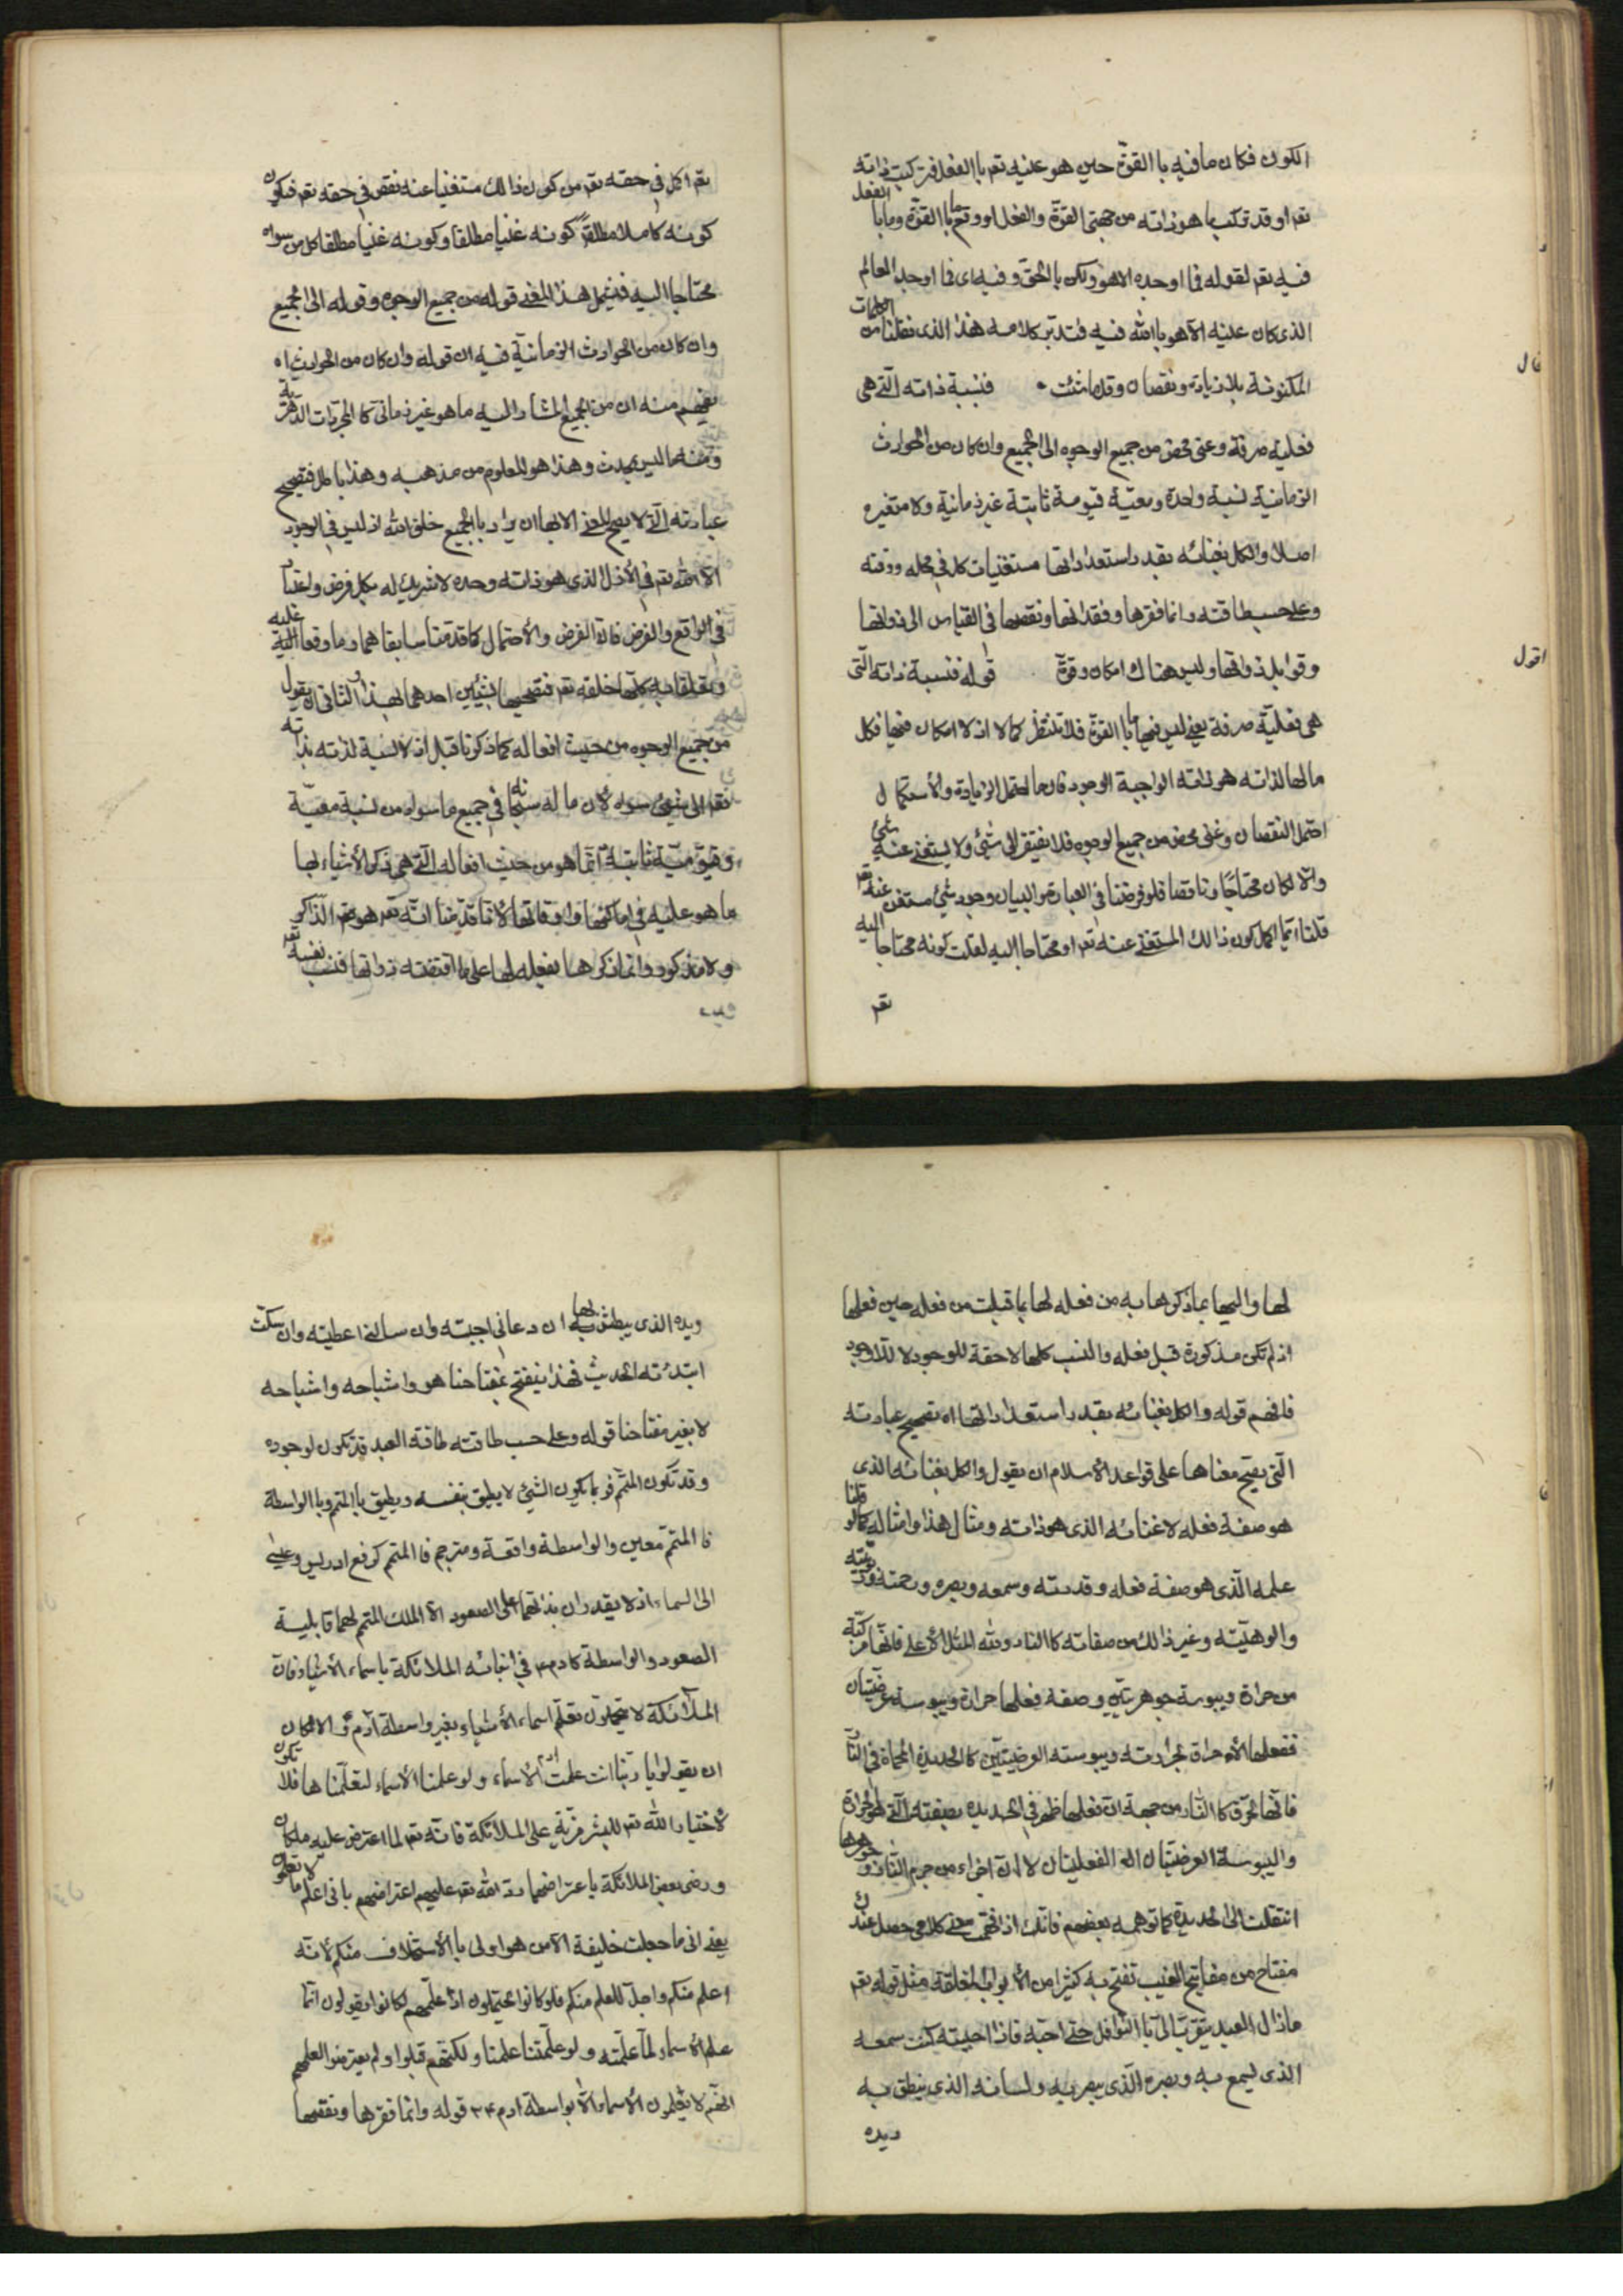 الكون فكان ما فيه باالقوّة حين هو عليه تعم باالفعل فتركبت ذاته
تعم او قد تركب ما هو ذاته من جهتى القوّة والفعل او وقع ما باالقوّة وما باالفعل
فيه تعم لقوله فما اوحده الا هو ولكن باالحق وفيه اى فما اوجد العالم
الذى كان عليه الا هو باالله فيه فتدبر كلامه هذا الذى نقلنا من الكلمات
المكنونة بلا زيادة ونقصان وقل ما شئت • فنسبة ذاته التى هى
قال
فعلية صرفة وغنى محض من جميع الوجوه الى الجميع وان كان من الحوادث
الزمانية نسبة واحدة ومعيّة قيومية ثابتة غير زمانية ولا متغيره
اصلا والكل بغنائه بقدر استعداداتها مستغنيات كل فى محله ووقته
وعلى حسب طاقته وانما فقرها وفقدانها ونقصها فى القياس الى ذواتها
وقوابل ذواتها وليس هناك امكان وقوّة قوله فنسبة ذاته الّتى
اقول
هى فعليّة صرفة يعنى ليس فيها ما باالقوّة فلا تنتظر كمالا اذ لا امكان فيها فكل
ما لها لذاته هو ذاته الواجبة الوجود فان ما احتمل الزيادة والأستكمال
احتمل النقصان وغنى محض من جميع الوجوه فلا يفتقر الى شئ ولا يستغنى عنه شئ
والا لكان محتاجًا وناقصا فلو فرضنا فى العبارة والبيان وجود شئ مستغن عنه تعم
قلنا ايّما اكمل كون ذالك المستغنى عنه تعم او محتاجا اليه لقلت كونه محتاجا اليه
تعم
تعم اكمل فى حقه تعم من كون ذالك مستغنيا عنه نقص فى حقه تعم فيكون
كونه كاملا مطلقا كونه غنيا مطلقا وكونه غنيا مطلقا كل من سواه
محتاجا اليه فيشمل هذا المعنى قوله من جميع الوجوه وقوله الى الجميع
وان كان من الحوادث الزمانية فيه ان قوله وان كان من الحوادث اه
يفهم منه ان من الجميع المشار اليه ما هو غير زمانى كاالمجردات الدّهريّة
ومنه ما ليس بحدث وهذا هو المعلوم من مذهبه وهذا باطل فتصحيح
عبارته الّتى لا يصح المعنى الا بها ان يراد باالجميع خلق الله اذ ليس فى الوجود
الا الله تعم فى الأزل الذى هو ذاته وحده لا شريك له بكل فرض واعتبار
فى الواقع والفرض فانّ الفرض والأحتمال كما قدّمنا سابقا هما وما وقعا عليه
وتعلقا به كلّها خلقه تعم فتصحيحها بشيئين احدهما بهذا والثانى ان يقول
من جميع الوجوه من حيث افعاله كما ذكرنا قبل اذ لا نسبة لذاته بذاته
تعم الى شئ سواه لأن ما له سبحانه فى جميع ما سواه من نسبة معيّة
وقيّوميّة ثابتة انّما هو من حيث افعاله الّتى هى ذكر الأشياء بها
ما هو عليه فى اماكنها واوقاتها لأنا قدّمنا انّه تعم هو تعم الذّاكر
ولا مذكور وانما ذكرها بفعله لها على ما اقتضته ذواتها فنسب نفسه تعم
لها واليها بما ذكرها به من فعله لها بما قبلت من فعله حين فعلها
اذ لم تكن مذكورة قبل فعله والنسب كلها لاحقة للوجود لا للاوجود
فافهم قوله والكل بغنائه بقدر استعداداتها اه تصحيح عبارته
الّتى يصح معناها على قواعد الأسلام ان يقول والكل بغنائه الذى
هو صفة فعله لا غنائه الذى هو ذاته ومثال هذا وامثاله كما لو قلنا
علمه الّذى هو صفة فعله وقدرته وسمعه وبصره ورحمته وربوبيّته
والوهيّته وغير ذالك من صفاته كاالنار ولله المثل الأعلى فانّها مركّبة
من حرارة ويبوسة جوهريّتين وصفة فعلها حرارة ويبوسة عرضيّتان
ففعلها الأحراق بحرارته ويبوسته العرضيّتين كاالحديدة المحماة فى النّار
فانّها تحرّق كاالنّار من جهة انّ فعلها ظهر فى الحديدة بصفته الّتى هى الحرارة
واليبوسة العرضيّتان اى الفعليتان لا انّ اجزاء من جرم النّار وجوهرها
انتقلت الى الحديدة كما توهمه بعضهم فانّك اذا فهمت معنى كلامى حصل عندك
مفتاح من مفاتيح الغيب تفتح به كثيرا من الأبواب المغلقة مثل قوله تعم
ما زال العبد يتقرّب الىّ باالنّوافل حتى احبّه فاذا احببته كنت سمعه
الذى يسمع به وبصره الّذى يبصر به ولسانه الذى ينطق به
ويده
ويده الذى يبطش بها ان دعانى اجبته وان سألنى اعطيته وان سكت
ابتدئته الحديث فهذا ينفتح بمفتاحنا هو واشباحه واشباحه
لا بغير مفتاحنا قوله وعلى حسب طاقته طاقة العبد قد تكون لوجوده
وقد تكون المتمّم فربما يكون الشئ لا يطيق بنفسه ويطيق باالمتمم وباالواسطة
فاالمتمّم معين والواسطة واقعة ومترجم فاالمتمم كرفع ادريس وعيسى
الى السماء اذ لا يقدران بذاتهما على الصعود الا الملك المتمم لهما قابلية
الصعود والواسطة كادم ع فى انبائه الملائكة باسماء الأشياء فانّ
الملآئكة لا يحتملون تعلّم اسماء الأشياء بغير واسطة آدم ع والا لكان
ان يقولوا يا ربّنا انت علّمت ادم الأسماء ولو علمتنا الأسماء لتعلّمناها فلا تكون
لأختيار الله تعم للبشر مزيّة على الملائكة فانّه تعم لما اعترض عليه ملكان
ورضى بعض الملائكة باعتراضهما ردّ الله تعم عليهم اعتراضهم بانى اعلم ما لا تعلمون
يعنى انى ما جعلت خليفة الا من هو اولى باالأستخلاف منكم لأنّه
اعلم منكم واحمل للعلم منكم فلو كانوا يحتملون اذا علّمهم لكانوا يقولون انّما
علم الأسماء لمّا علّمته ولو علّمتنا علمنا ولكنّهم قبلوا ولم يعترضوا لعلمهم
انّهم لا يعلمون الأسماء الّا بواسطة ادم ع م قوله وانّما فقرها ونقصها